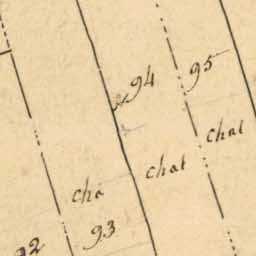 94
95
chat
chat
cha
93
92